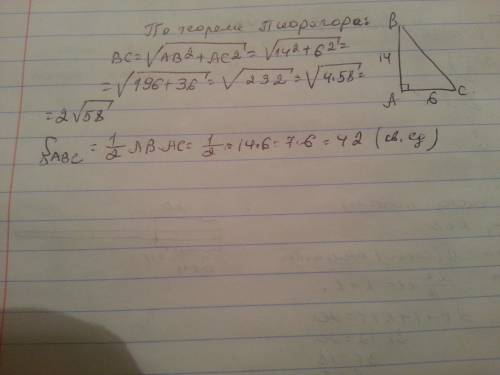 По теореме Пифагора:
BC=√AB²+AC²=√14²+6²=
=√196+36=√232=√4.58=
=2√58
S△ABC=1/2 AB·AC=1/2·14·6=7·6=42 (кв. ед)
B
14
A
6
C